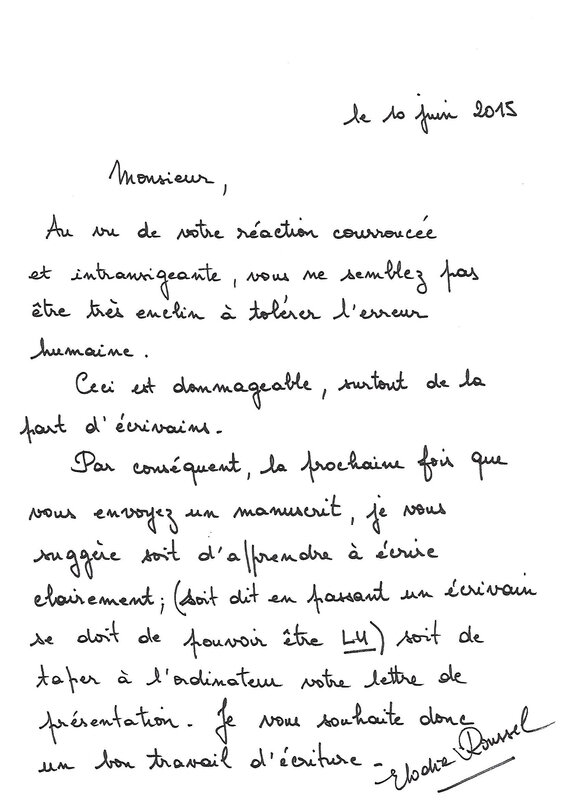 le 10 juin 2015
Monsieur,
Au vu de votre réaction courroucée
et intransigeante, vous ne semblez pas
être très enclin à tolérer l'erreur
humaine.
Ceci est dommageable, surtout de la
part d'écrivains.
Par conséquent, la prochaine fois que
vous envoyez un manuscrit, je vous
suggère soit d'apprendre à écrire
clairement; (soit dit en passant un écrivain
se doit de pouvoir être LU) soit de
taper à l'ordinateur votre lettre de
présentation. Je vous souhaite donc
un bon travail d'écriture.
Elodie Roussel